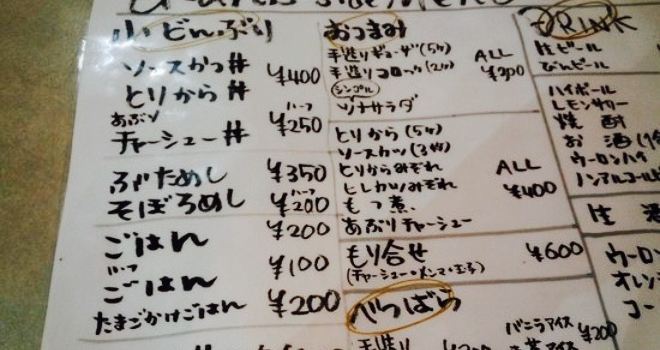 小どんぶり
ソースかつ丼
とりから丼
¥400
あぶり
チャーシュー丼
ハーフ
¥250
ぶためし
¥350
そぼろめし
ハーフ
¥200
ごはん
¥200
ハーフ
ごはん
¥100
たまごかけごはん
¥200
おつまみ
手造りギョーザ(5ヶ)
手造りコロッケ(2ヶ)
ALL
¥300
シンプル
ツナサラダ
とりから(5ヶ)
ソースカツ(3枚)
とりからみぞれ
ヒレカツみぞれ
もつ煮
あぶりチャーシュー
ALL
¥400
もり合せ
(チャーシュー・メンマ・玉子)
¥600
べつばら
手造り
バニラアイス
¥200
DRINK
生ビール
びんビール
ハイボール
レモンサワー
焼酎
お酒
ウーロンハイ
ノンアルコール
生酒
ウーロン
オレン
コー